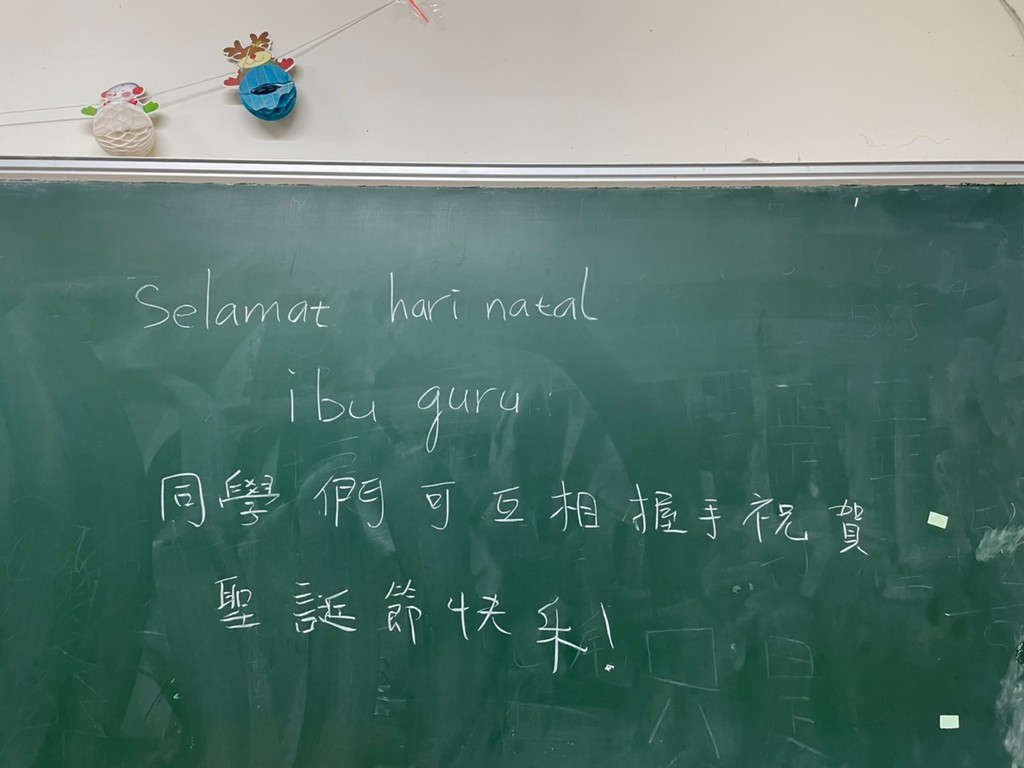 Selamat hari natal
ibu guru
同學們可互相握手祝賀
聖誕節快乐!